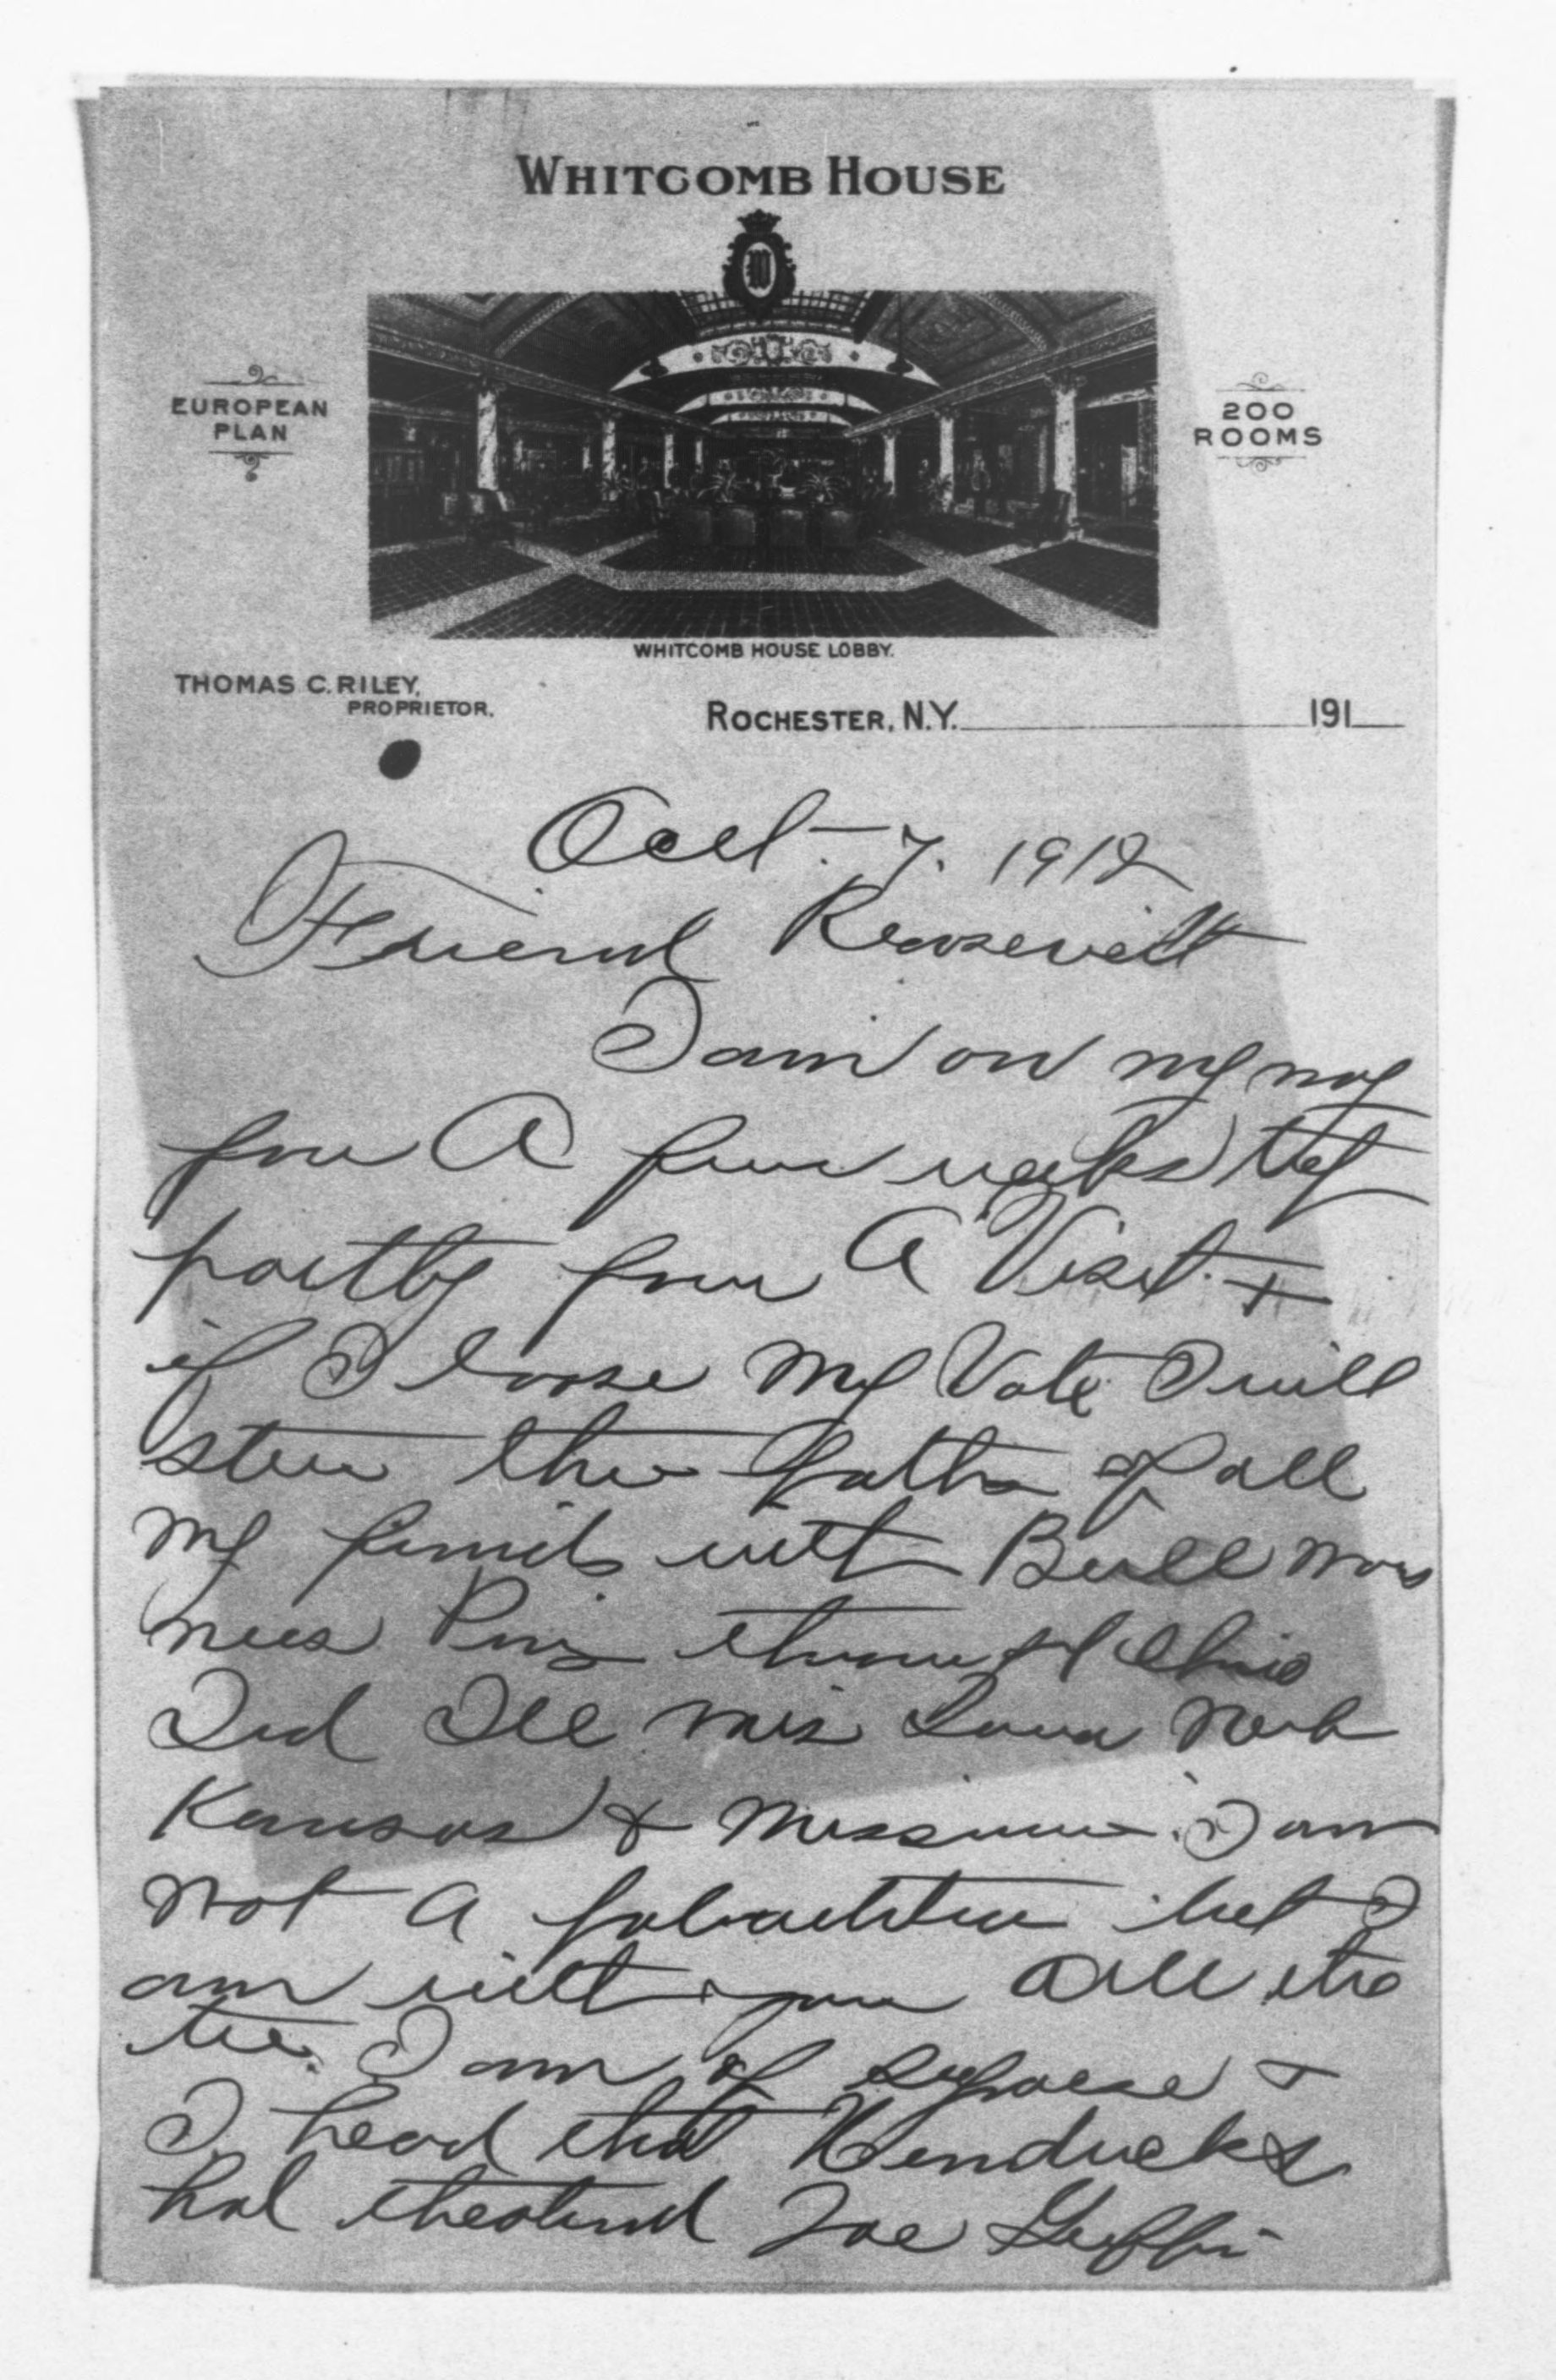 WHITCOMB HOUSE
W
EUROPEAN
PLAN
200
ROOMS
WHITCOMB HOUSE LOBBY.
THOMAS C. RILEY,
PROPRIETOR.
ROCHESTER, N.Y. 191
Oct. 7. 1912
Friend Roosevelt
I am on my way
for A few weeks trip
partly for A Visit. +
if I loose my Vote I will
strew the path of all
my friends with Bull Moos
through Ohio
Ind Ill Wis Iowa Neb
Kansas & Missouri. I am
not a but I
am with you All the
I am of +
I heard that Hendricks
had Joe Griffin